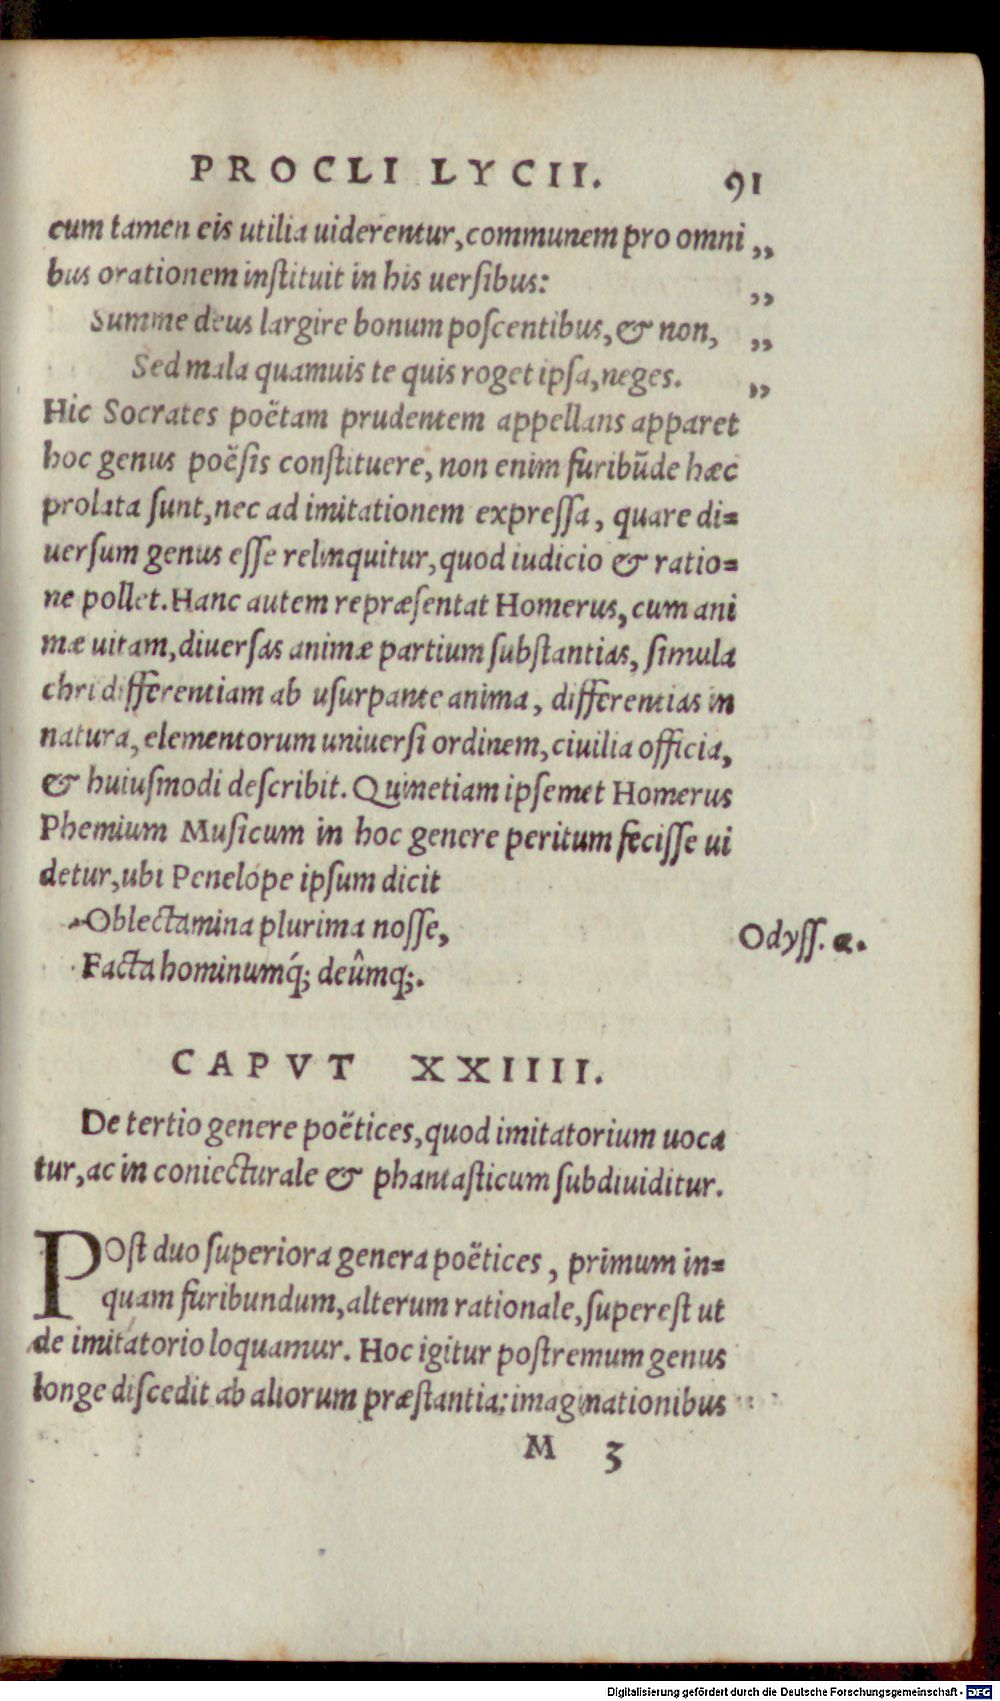 PROCLI LYCII. 91
cum tamen eis utilia uiderentur, communem pro omni „
bus orationem instituit in his uersibus: „
Summe deus largire bonum poscentibus, & non, „
Sed mala quamuis te quis roget ipsa, neges. „
Hic Socrates poëtam prudentem appellans apparet
hoc genus poësis constituere, non enim furibūde hæc
prolata sunt, nec ad imitationem expressa, quare di=
uersum genus esse relinquitur, quod iudicio & ratio=
ne pollet. Hanc autem repræsentat Homerus, cum ani
mæ uitam, diuersas animæ partium substantias, simula
chri differentiam ab usurpante anima, differentias in
natura, elementorum uniuersi ordinem, ciuilia officia,
& huiusmodi describit. Quinetiam ipsemet Homerus
Phemium Musicum in hoc genere peritum fecisse ui
detur, ubi Penelope ipsum dicit
Oblectamina plurima nosse, Odyss. α.
Facta hominumq́; deûmq;.
CAPVT XXIIII.
De tertio genere poëtices, quod imitatorium uoca
tur, ac in coniecturale & phantasticum subdiuiditur.
POst duo superiora genera poëtices, primum in=
quam furibundum, alterum rationale, superest ut
de imitatorio loquamur. Hoc igitur postremum genus
longe discedit ab aliorum præstantia: imaginationibus
M 3
Digitalisierung gefördert durch die Deutsche Forschungsgemeinschaft - DFG